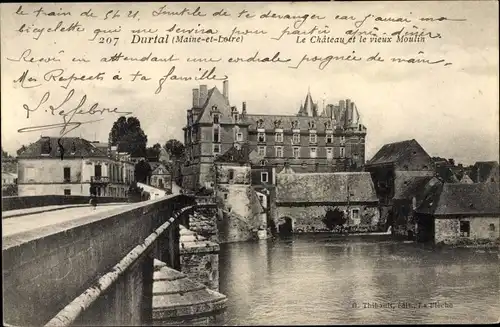 le train de 5h 21. Inutile de te déranger car j'aurai ma
bicyclette qui me servira pour partir après dîner.
207 Durtal (Maine-et-Loire) Le Château et le vieux Moulin
Reçois en attendant une cordiale poignée de main.
Mes Respects à ta famille
S. Lefebvre
G. Thibault, édit., La Flèche